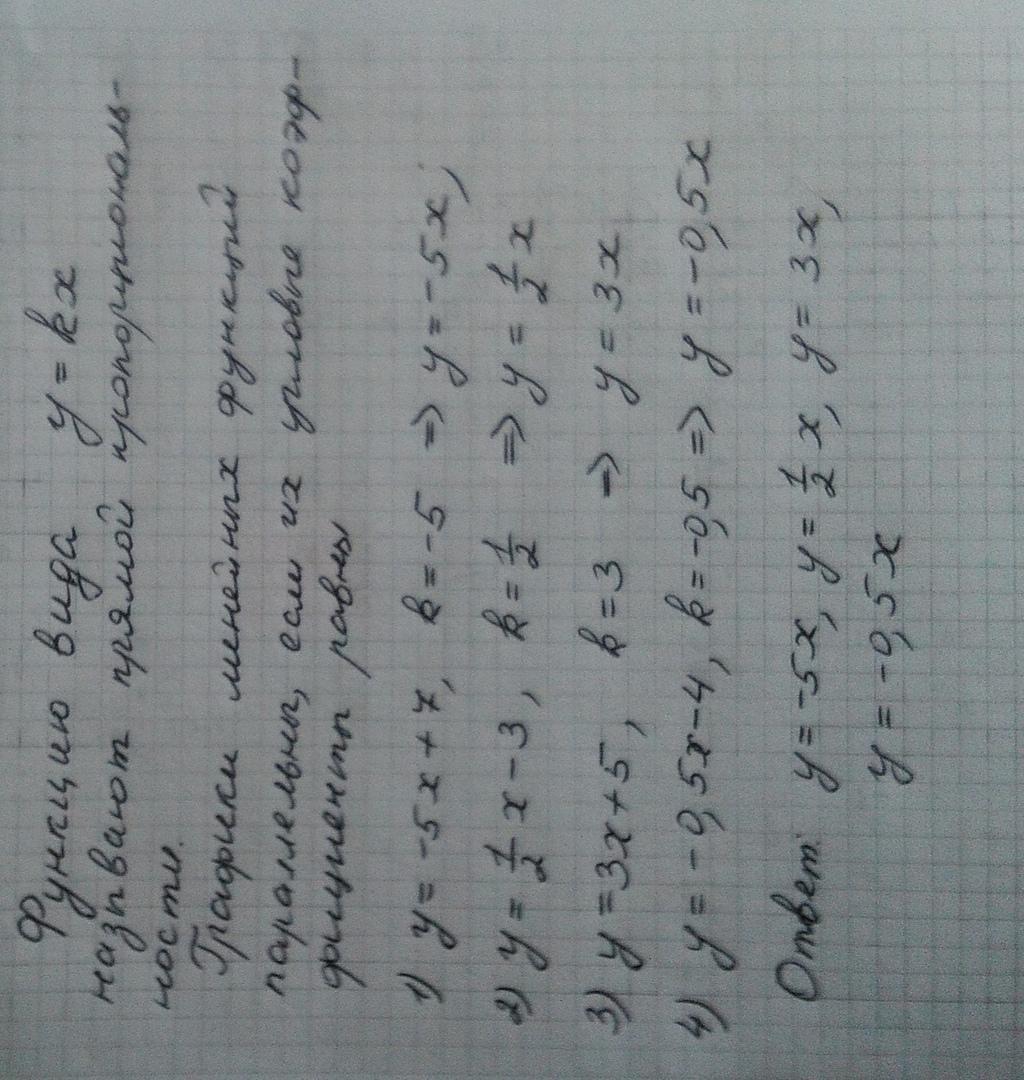 Функцию вида y = kx
называют прямой пропорциональ-
ности.
Графики линейных функций
параллельны, если их угловые коэф-
фициенты равны
1) y = -5x + 7, k = -5 => y = -5x;
2) y = 1/2 x - 3, k = 1/2 => y = 1/2 x
3) y = 3x + 5, k = 3 => y = 3x
4) y = -0,5x - 4, k = -0,5 => y = -0,5x
Ответ: y = -5x, y = 1/2 x, y = 3x,
y = -0,5x